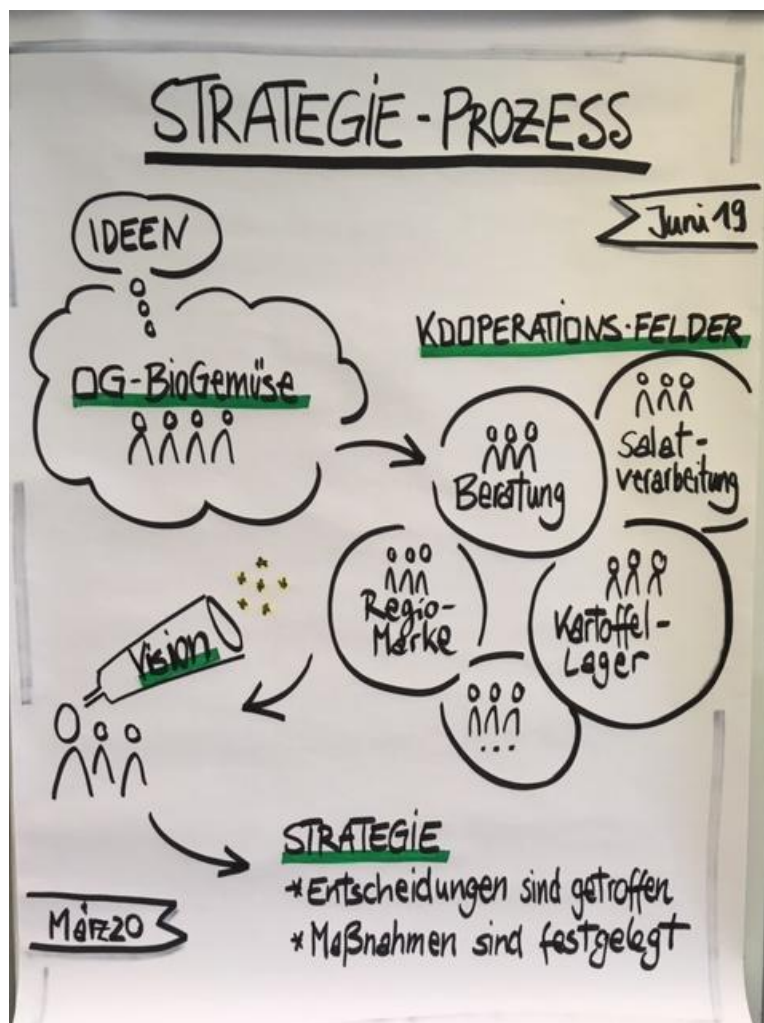 STRATEGIE-PROZESS
Juni 19
IDEEN
OG-BioGemüse
KOOPERATIONS-FELDER
Beratung
Salat-
verarbeitung
Regio-
Marke
Kartoffel-
Lager
...
Vision
STRATEGIE
* Entscheidungen sind getroffen
* Maßnahmen sind festgelegt
März20